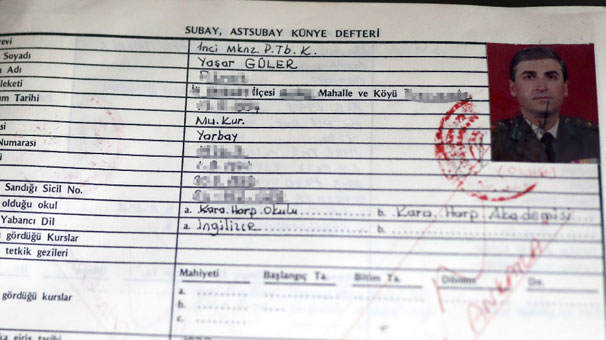 SUBAY, ASTSUBAY KÜNYE DEFTERİ
evi İnci Mknz. P. Tb. K.
Soyadı Yaşar GÜLER
Adı
leketi İlçesi Mahalle ve Köyü
um Tarihi
Mu. Kur.
Numarası Yarbay
Sandığı Sicil No.
olduğu okul a. Kara. Harp. Okulu b. Kara. Harp Akademisi
Yabancı Dil a. İngilizce b.
gördüğü Kurslar
tetkik gezileri
Mahiyeti Başlangıç Ta. Bitim Ta.
gördüğü kurslar a.
b.
c.
giriş tarihi
ANKARA